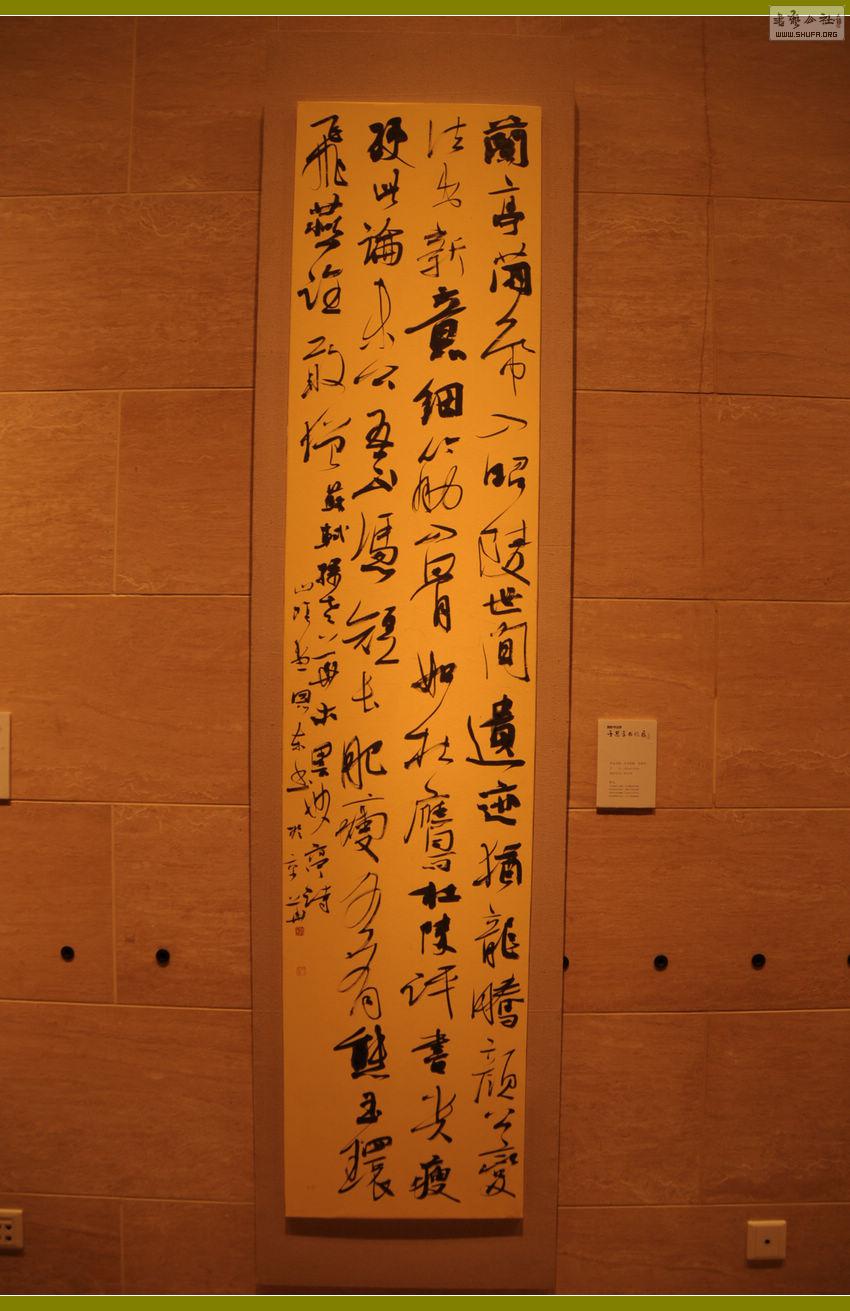 書藝公社
WWW.SHUFA.ORG
蘭亭繭帋入昭陵世間遺迹猶龍騰顏公變
法出新意細筋入骨如秋鷹杜陵評書貴瘦
硬此論未公吾不憑短長肥瘦各有態玉環
飛燕誰敢憎
蘇軾孫莘老求墨妙亭詩
東書於京華